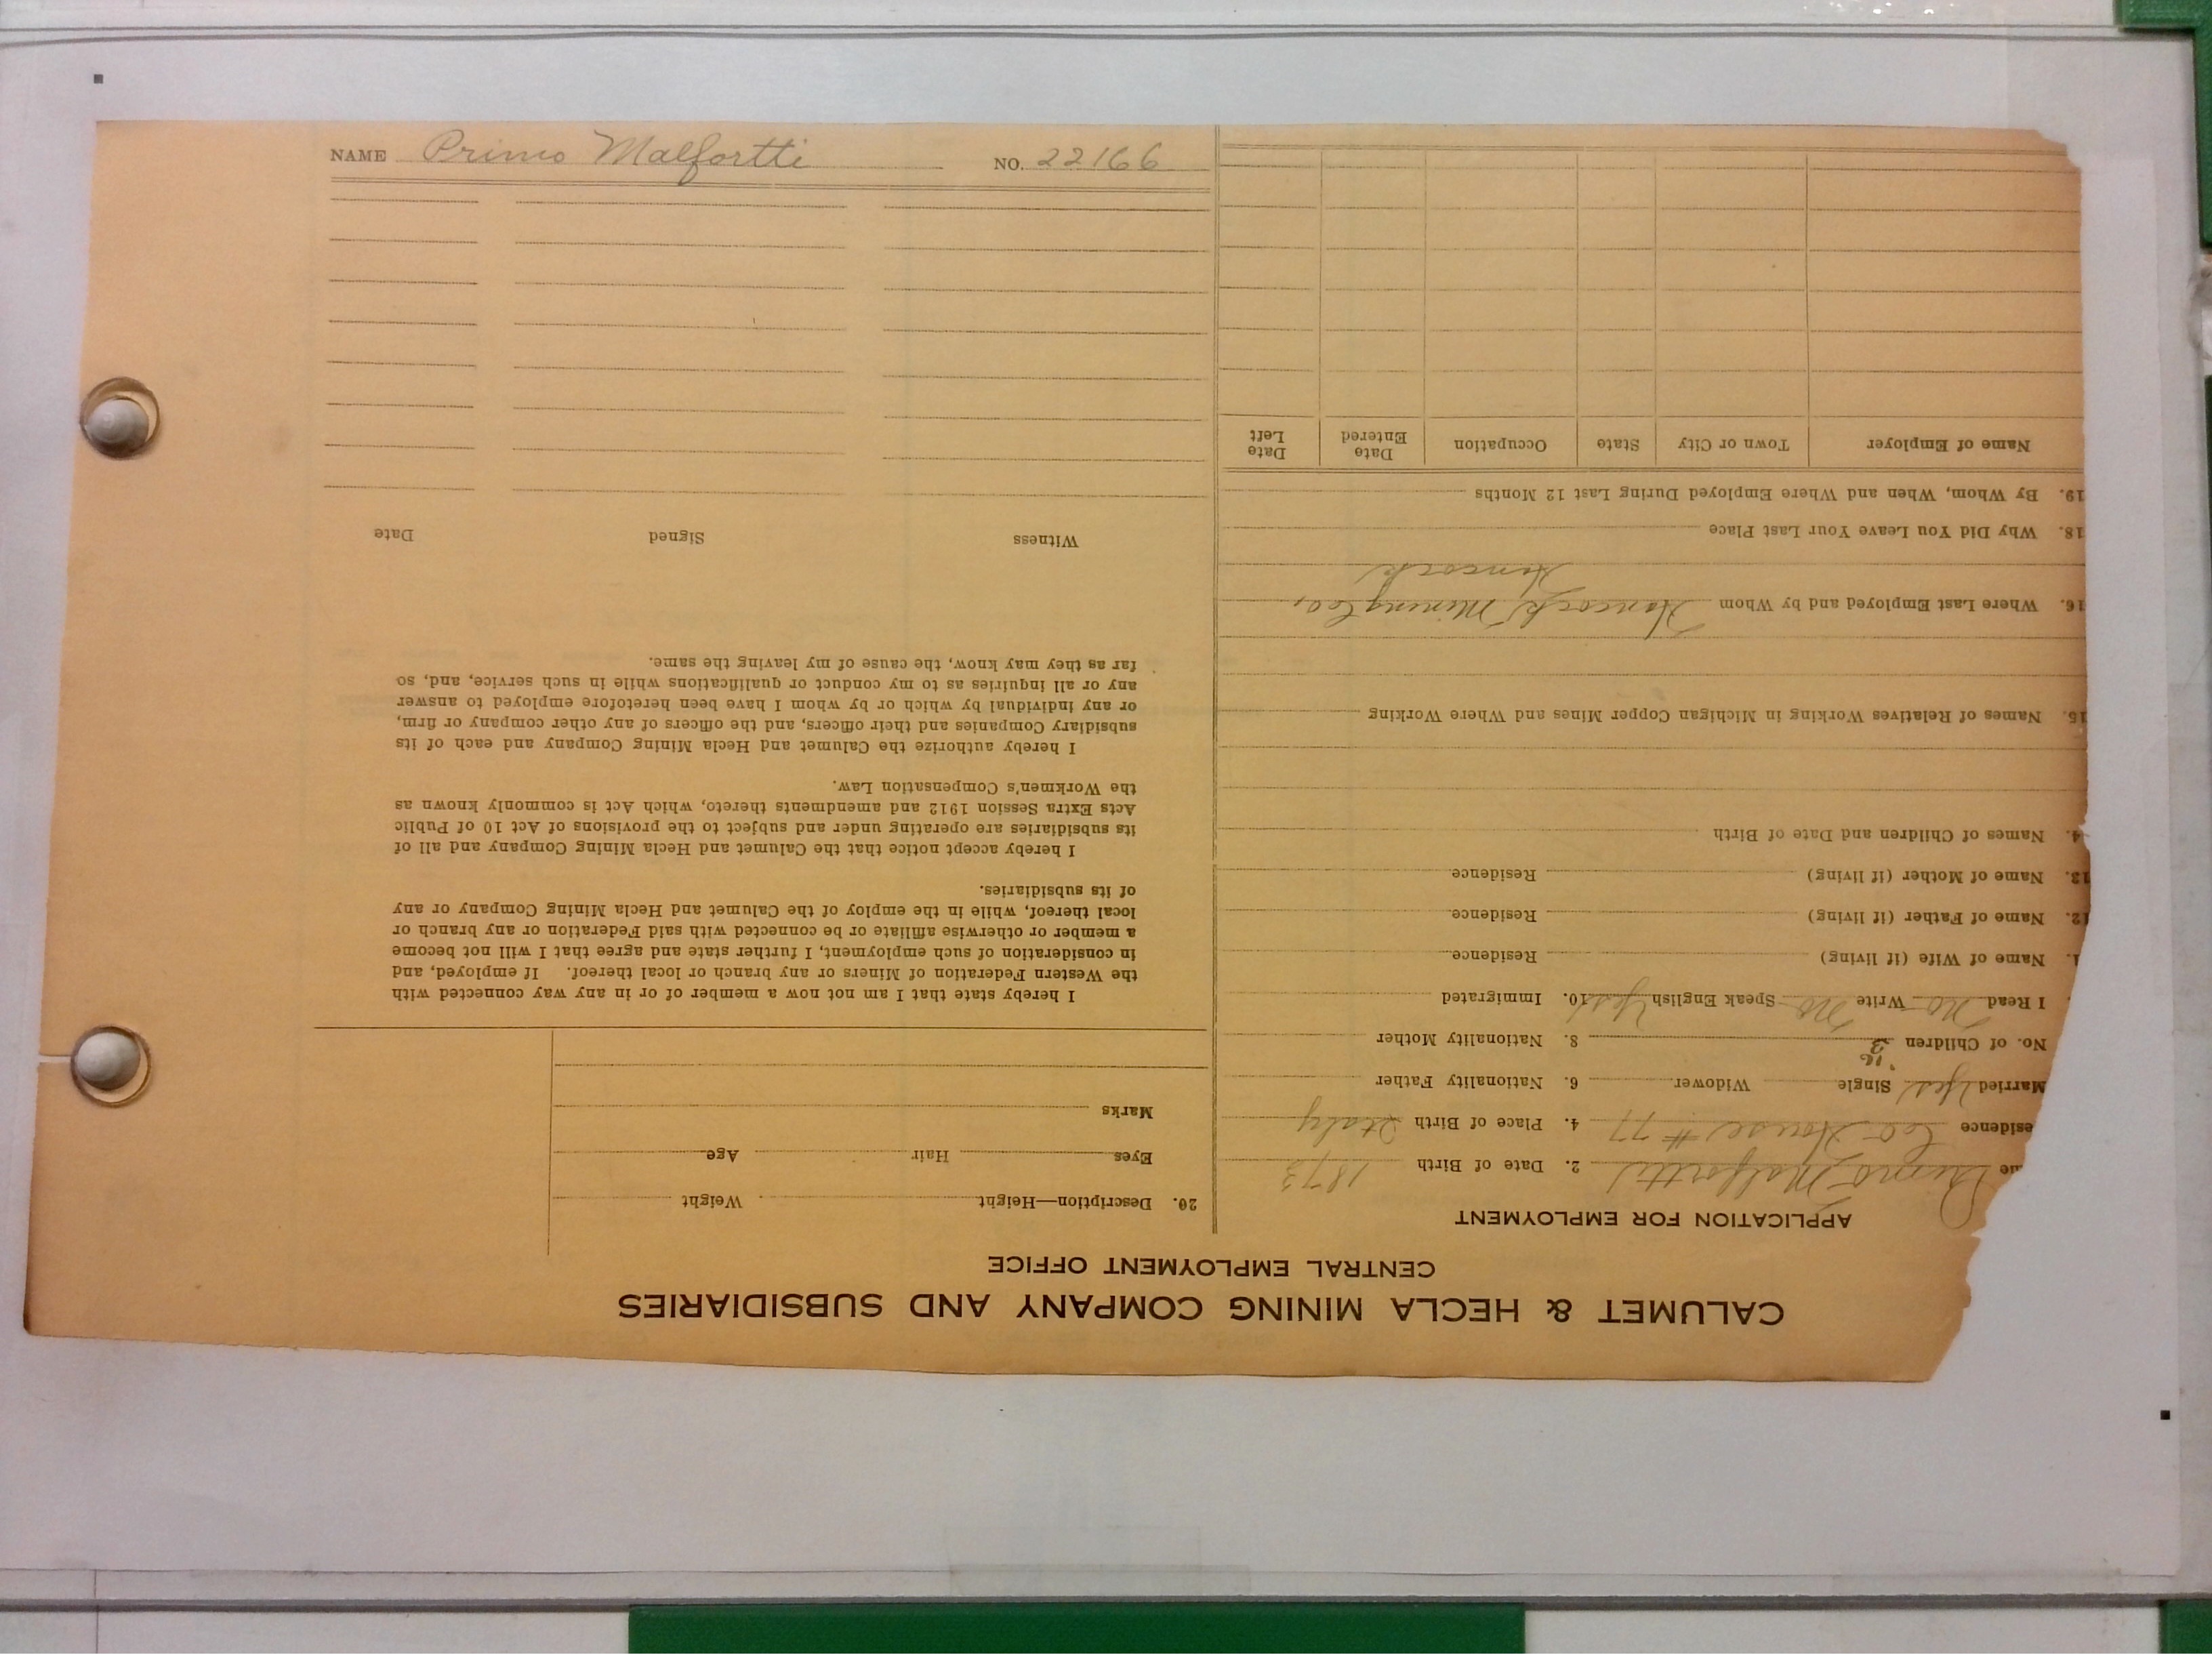 NAME Primo Malfortti NO. 22166
CALUMET & HECLA MINING COMPANY AND SUBSIDIARIES
CENTRAL EMPLOYMENT OFFICE
APPLICATION FOR EMPLOYMENT
Primo Malfortti 2. Date of Birth 1873
esidence Co House # 77 4. Place of Birth Italy
Married Yes Single Widower 6. Nationality Father
No. of Children 8. Nationality Mother
I Read No Write No Speak English Yes 10. Immigrated
1. Name of Wife (if living) Residence
12. Name of Father (if living) Residence
13. Name of Mother (if living) Residence
4. Names of Children and Date of Birth
15. Names of Relatives Working in Michigan Copper Mines and Where Working
16. Where Last Employed and by Whom Hancock Mining Co,
Hancock
18. Why Did You Leave Your Last Place
19. By Whom, When and Where Employed During Last 12 Months
Name of Employer Town or City State Occupation Date Entered Date Left
20. Description—Height Weight
Eyes Hair Age
Marks
I hereby state that I am not now a member of or in any way connected with
the Western Federation of Miners or any branch or local thereof. If employed, and
in consideration of such employment, I further state and agree that I will not become
a member or otherwise affiliate or be connected with said Federation or any branch or
local thereof, while in the employ of the Calumet and Hecla Mining Company or any
of its subsidiaries.
I hereby accept notice that the Calumet and Hecla Mining Company and all of
its subsidiaries are operating under and subject to the provisions of Act 10 of Public
Acts Extra Session 1912 and amendments thereto, which Act is commonly known as
the Workmen's Compensation Law.
I hereby authorize the Calumet and Hecla Mining Company and each of its
subsidiary Companies and their officers, and the officers of any other company or firm,
or any individual by which or by whom I have been heretofore employed to answer
any or all inquiries as to my conduct or qualifications while in such service, and, so
far as they may know, the cause of my leaving the same.
Witness Signed Date